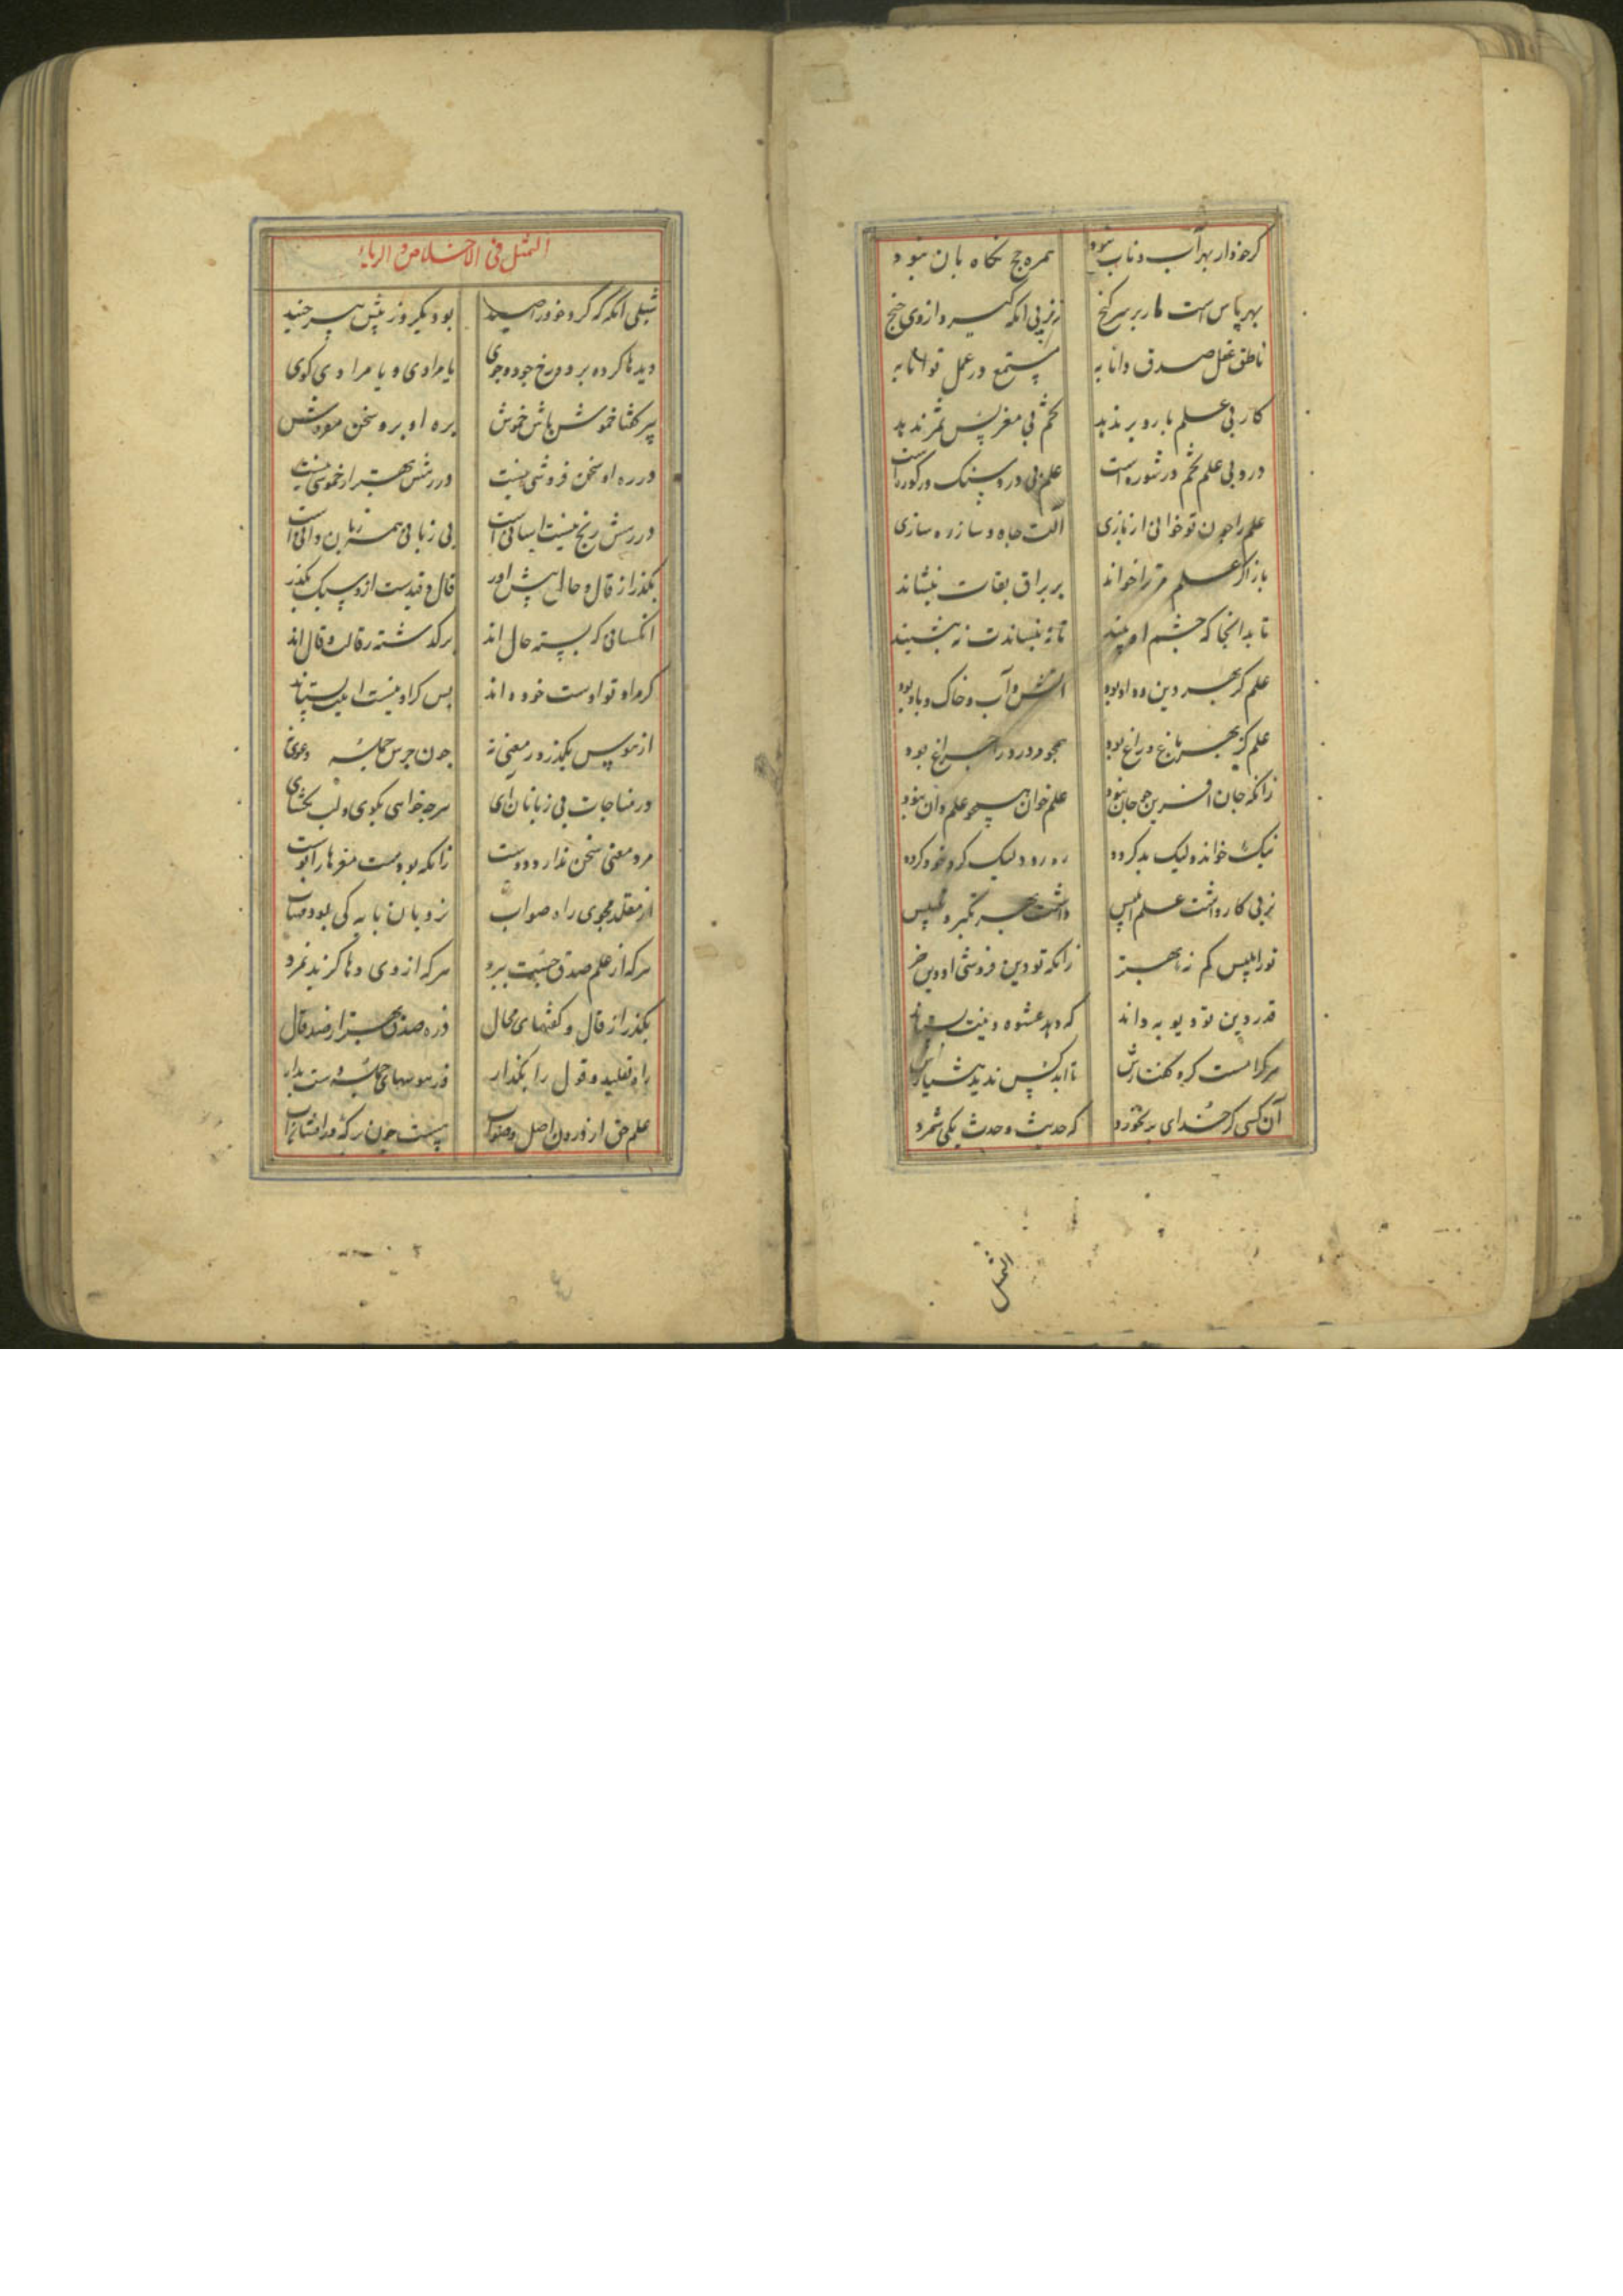 گر خردار بهر آب و تاب نبود همره حج نگاه بان نبود
بهر پاس است مار بر سر گنج نز پی آنکه گیرد از وی خنج
ناطق عقل صدق دانا به مستمع در عمل توانا به
کار بی علم بار و بر ندهد تخم بی مغز بس ثمر ندهد
درو بی علم تخم در شوره است علم بی درو سنگ در کوره است
علم را چون تو خوانی از بازی آلت جاه و ساز ره سازی
باز اگر علم مر ترا خواند بر براق بقات بنشاند
تا بدانجا که چشم او بیند تا نه بنشاندت نه بنشیند
علم کز بهر دین و داد بود آتش و آب و خاک و باد بود
علم کز بهر باغ و راغ بود همچو دزد را چراغ بود
زانکه جان آفرین چو جان نبود علم خوان همچو علم دان نبود
نیک خوانده ولیک بد کرده ره رود لیک گرد خود کرده
نز پی کار داشت علم ابلیس داشت بهر تکبر و تلبیس
تو ز ابلیس کم نه بهتر زانکه تو دین فروشی او دین خر
قدر دین تو دیو به داند که دهد عشوه دینت بستاند
هر کرا مست کرد گفتارش تا ابد کس ندید هشیارش
آن کسی کز خدای بد نخورد که حدیث و حدث یکی شمرد
التمثل
التمثل فی الاخلاص و الریاء
شبلی آنگه که کرد خود را صید بود یکروز پیش پیر جنید
دیدها کرده بر دو رخ چو دو جوی یا مرادی و یا مرادی گوی
پیر گفتا خموش باش خموش بره او برو سخن مفروش
در ره او سخن فروشی نیست در رهش بهتر از خموشی نیست
در رهش رنج نیست آسانی است بی زبانی همه زبان دانی است
بگذر از قال و حال پیش آور قال و قید است ازو سبک بگذر
آنکسانی که بسته حال اند برگذشته ز قالت و قال اند
گر مراد تو اوست خود داند پس گر او نیست این بستاند
از هوس بگذر و ز معنی نه چون جرس جمله دعوی نه
در مناجات بی زبانان آی هر چه خواهی بگوی و لب مگشای
مرد معنی سخن ندارد دوست زانکه بودست مغزها را پوست
از مقلد مجوی راه صواب نردبان پایه کی بود مهتاب
هر که از علم صدق جست ببرد هر که از وی دها گزید نمرد
بگذر از قال و گفتهای محال ذره صدق بهتر از صد قال
راه تقلید و قول را بگذار وز هوسهای جمله دست بدار
علم حق از درون اصل و صواب هست چون برکه